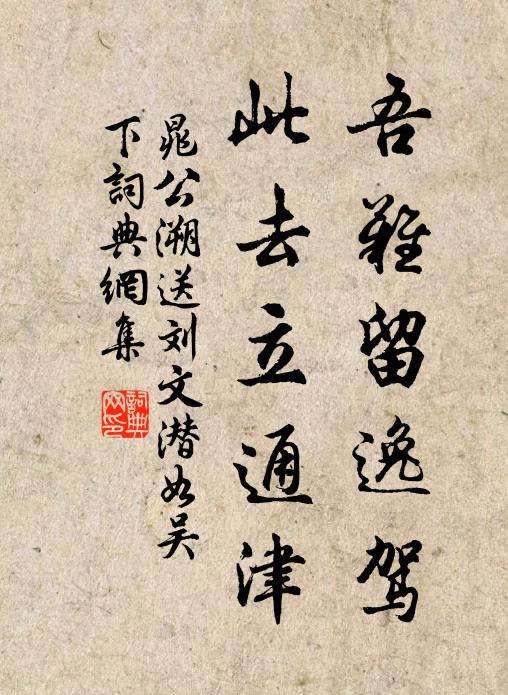 吾难留逸驾
此去立通津
晁公溯送刘文潜如吴
下詞典網集
詞典网印